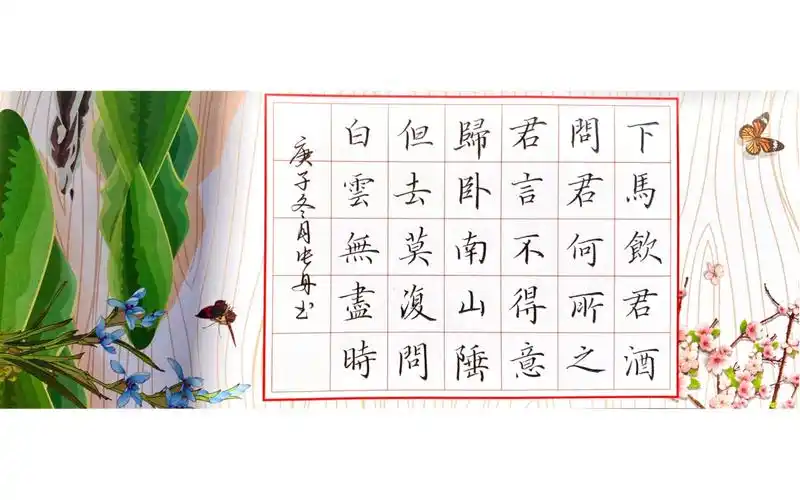 下馬飲君酒
問君何所之
君言不得意
歸卧南山陲
但去莫復問
白雲無盡時
庚子冬月张丹书